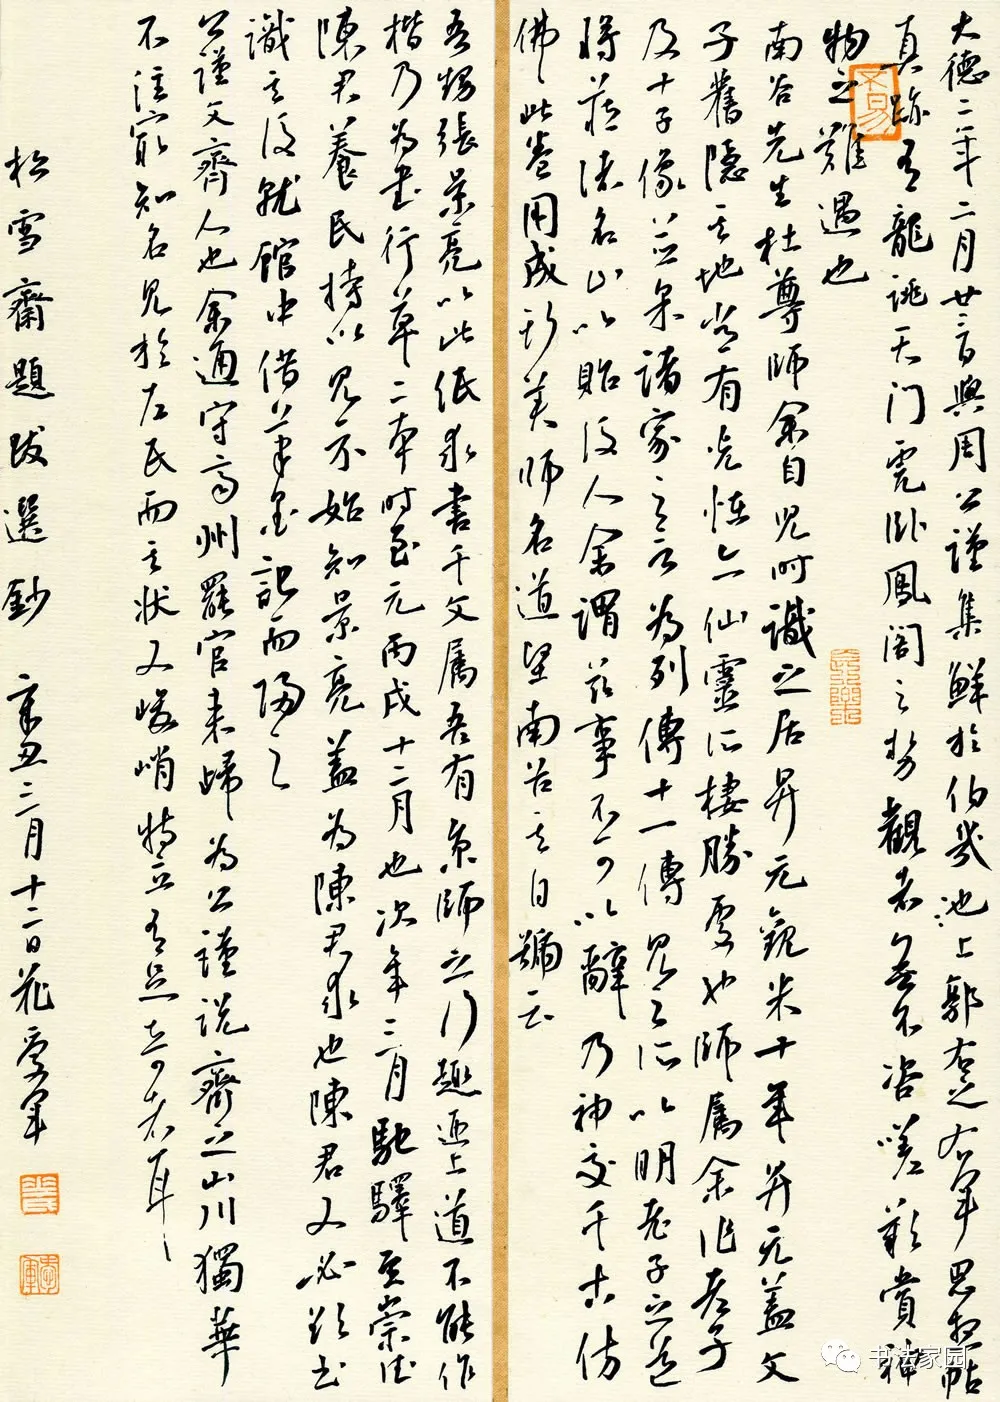 大德二年二月廿三日與周公謹集鮮於伯幾池上郭右之右軍思想帖
真跡有龍跳天门虎卧鳳閣之勢觀者無不咨嗟歎賞神
物之難遇也
南谷先生杜尊師余自兒时識之居昇元觀米十年昇元蓋文
子舊隱其地尚有光怪亦仙靈所棲勝處也師属余作老子
及十子像並采諸家之言为列傳十一傳見之所以明老子之道
将藏诸名山以貽後人余謂茲事不可以辭乃神交千古仿
佛此卷用成斯美师名道坚南谷其自號云
吾甥張景亮以此纸求書千文属吾有京師之行趣迫上道不能作
楷乃为書行草二本时至元丙戌十二月也次年三月馳驛至崇德
陳君養民持以見示始知景亮蓋为陳君求也陳君又必欲书
識其後就館中借筆墨記而歸之
公謹父齊人也余通守齊州罷官来歸为公謹说齊之山川獨華
不注最知名見於左氏而其狀又峻峭特立有足奇者耳
松雪齋題跋選鈔　辛丑三月十二日
书法家园